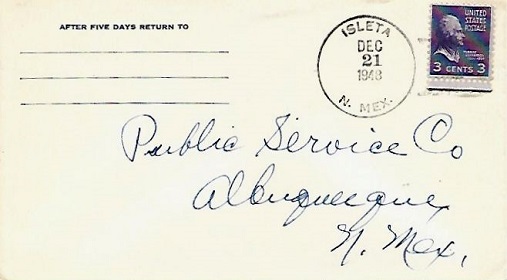 AFTER FIVE DAYS RETURN TO
ISLETA
DEC
21
1948
N. MEX.
UNITED
STATES
POSTAGE
3 CENTS 3
Public Service Co
Albuquerque
N. Mex.